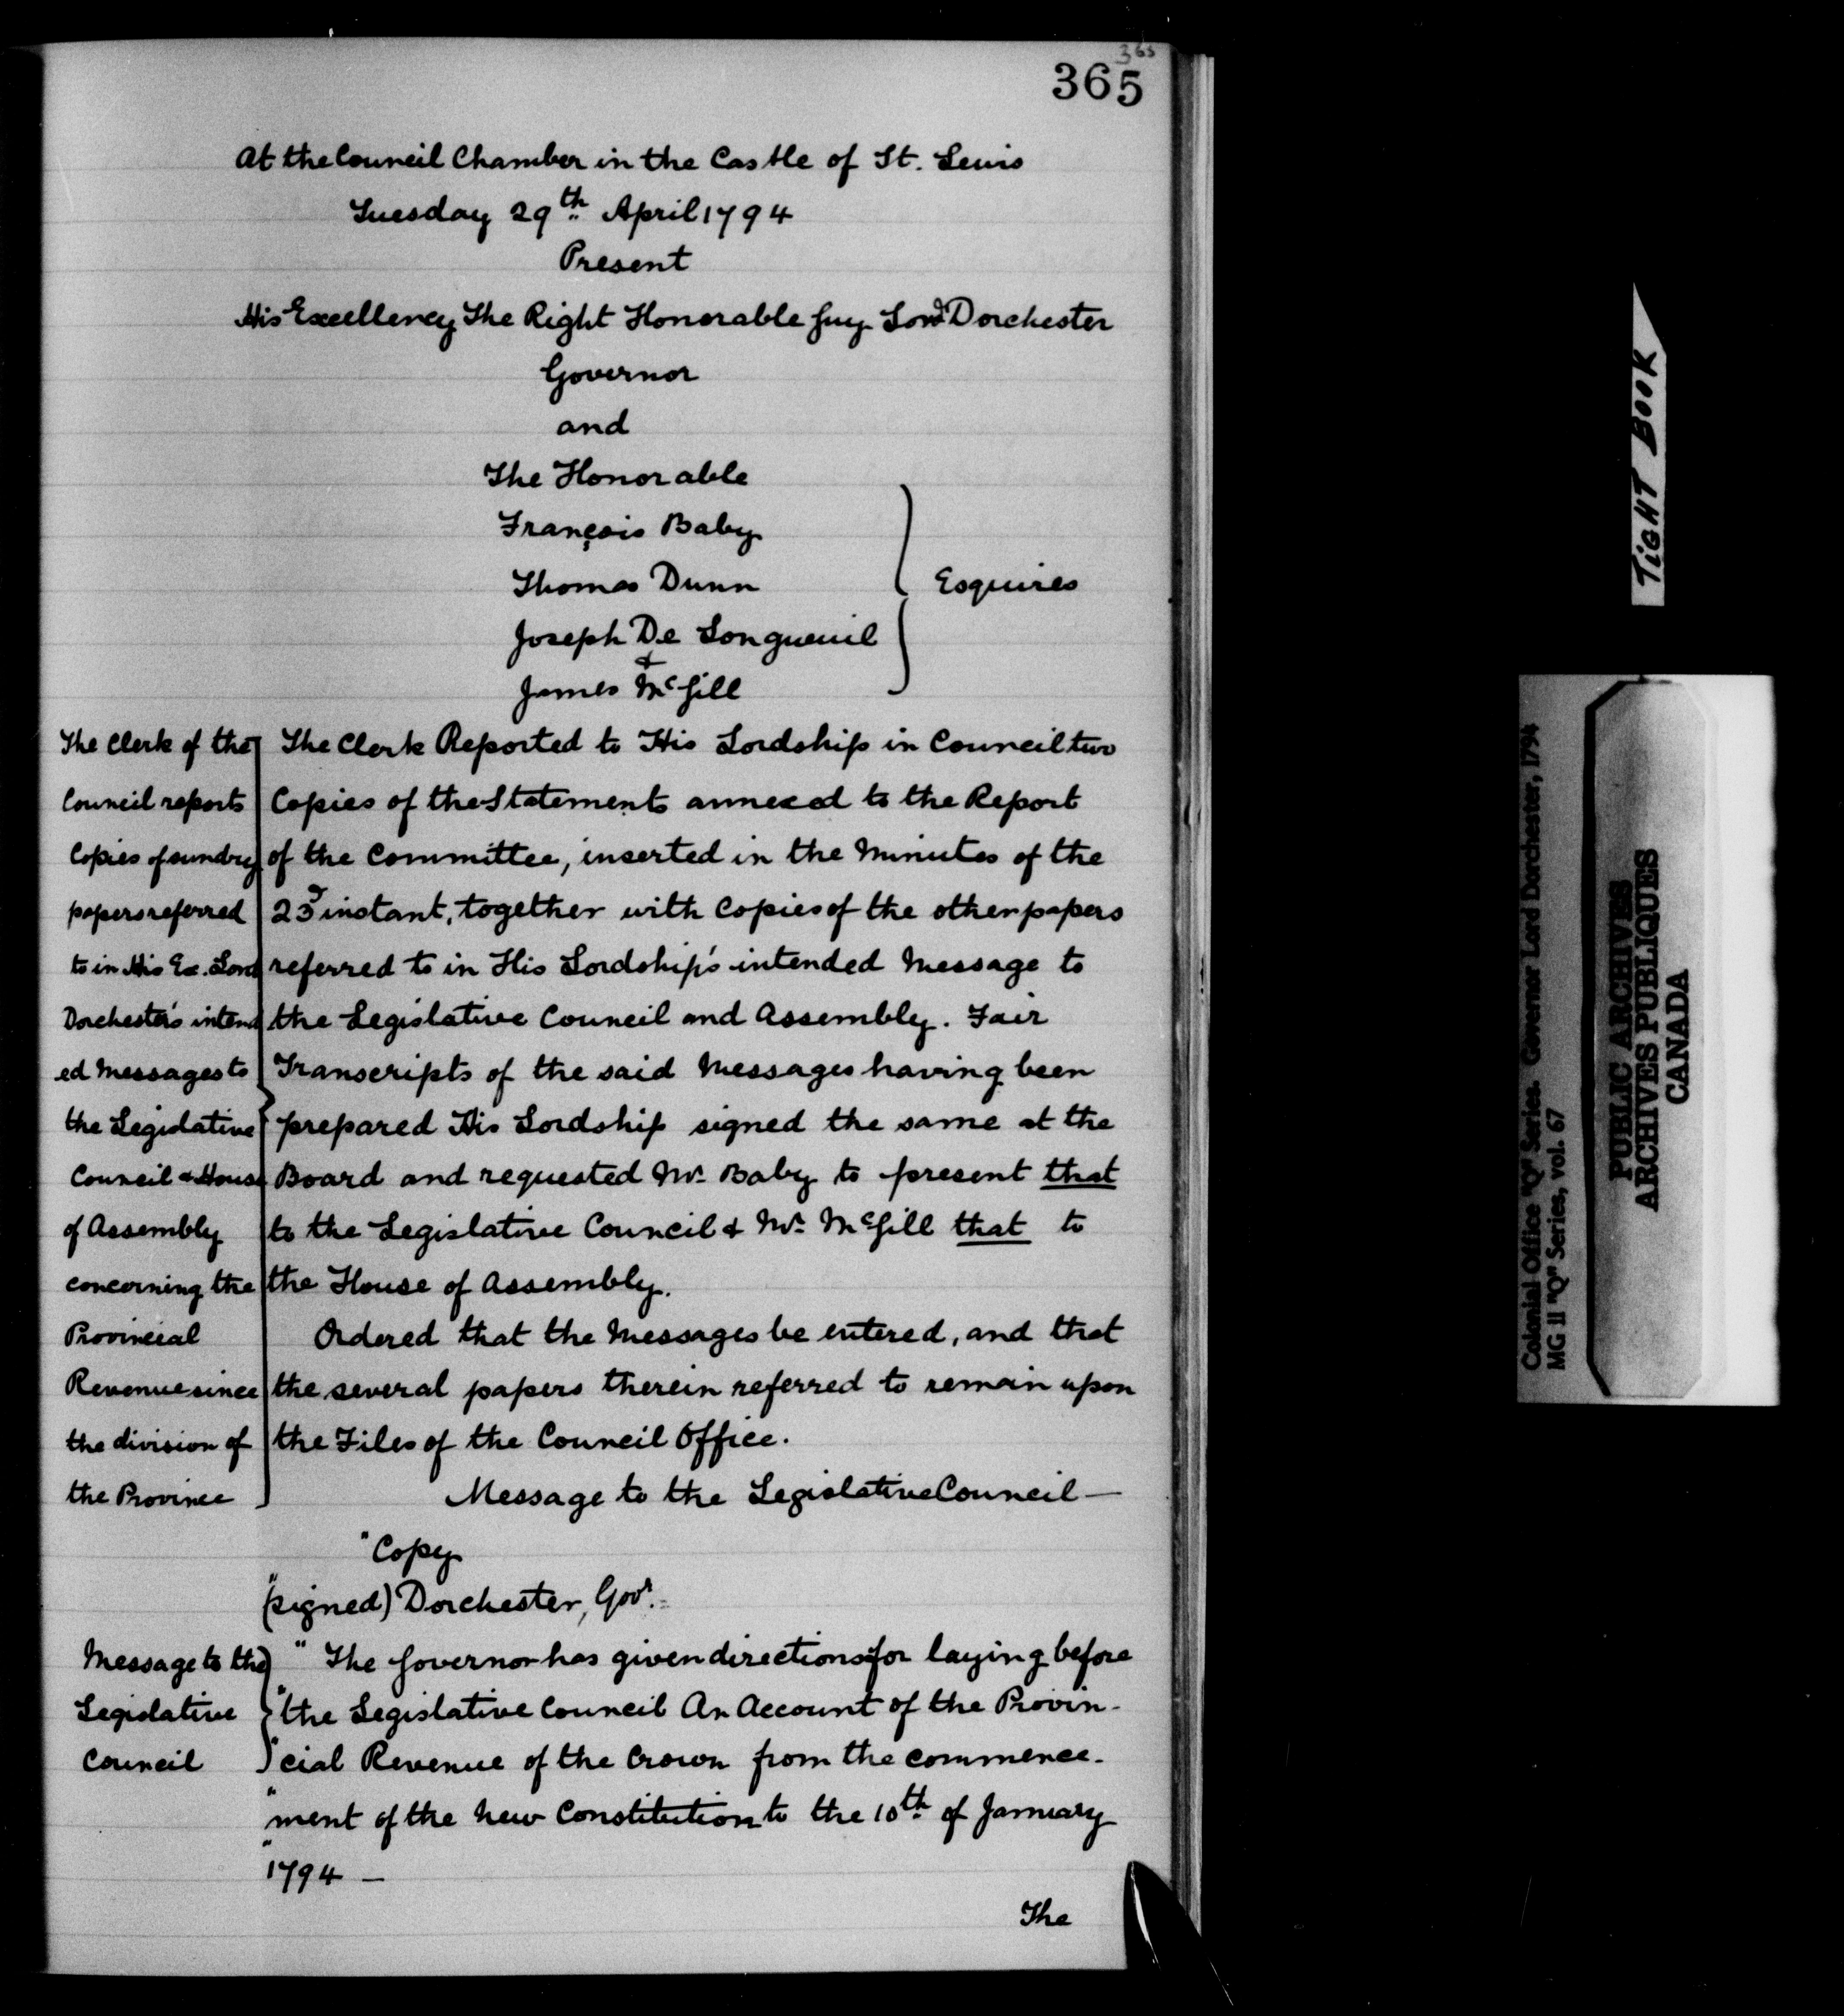 365
365
At the Council Chamber in the Castle of St. Lewis
Tuesday 29th April 1794
Present
His Excellency The Right Honorable Guy Lord Dorchester
Governor
and
The Honorable
François Baby
Thomas Dunn
Joseph De Longueuil
&
James McGill
Esquires
The Clerk of the
Council reports
Copies of sundry
papers referred
to in His Ex. Lord
Dorchester's intend
ed Messages to
the Legislative
Council & House
of Assembly
concerning the
Provincial
Revenue since
the division of
the Province
The Clerk Reported to His Lordship in Council two
Copies of the Statements annexed to the Report
of the Committee, inserted in the Minutes of the
23d instant, together with Copies of the other papers
referred to in His Lordship's intended Message to
the Legislative Council and Assembly. Fair
Transcripts of the said Messages having been
prepared His Lordship signed the same at the
Board and requested Mr. Baby to present that
to the Legislative Council & Mr. McGill that to
the House of Assembly.
Ordered that the Messages be entered, and that
the several papers therein referred to remain upon
the Files of the Council Office.
Message to the Legislative Council —
"Copy
"(signed) Dorchester, Govr.
Message to the
Legislative
Council
" The Governor has given directions for laying before
"the Legislative Council An Account of the Provin-
"cial Revenue of the Crown from the commence-
"ment of the New Constitution to the 10th of January
"1794 —
The
TIGHT BOOK
Colonial Office "Q" Series. Governor Lord Dorchester, 1794
MG 11 "Q" Series, vol. 67
PUBLIC ARCHIVES
ARCHIVES PUBLIQUES
CANADA